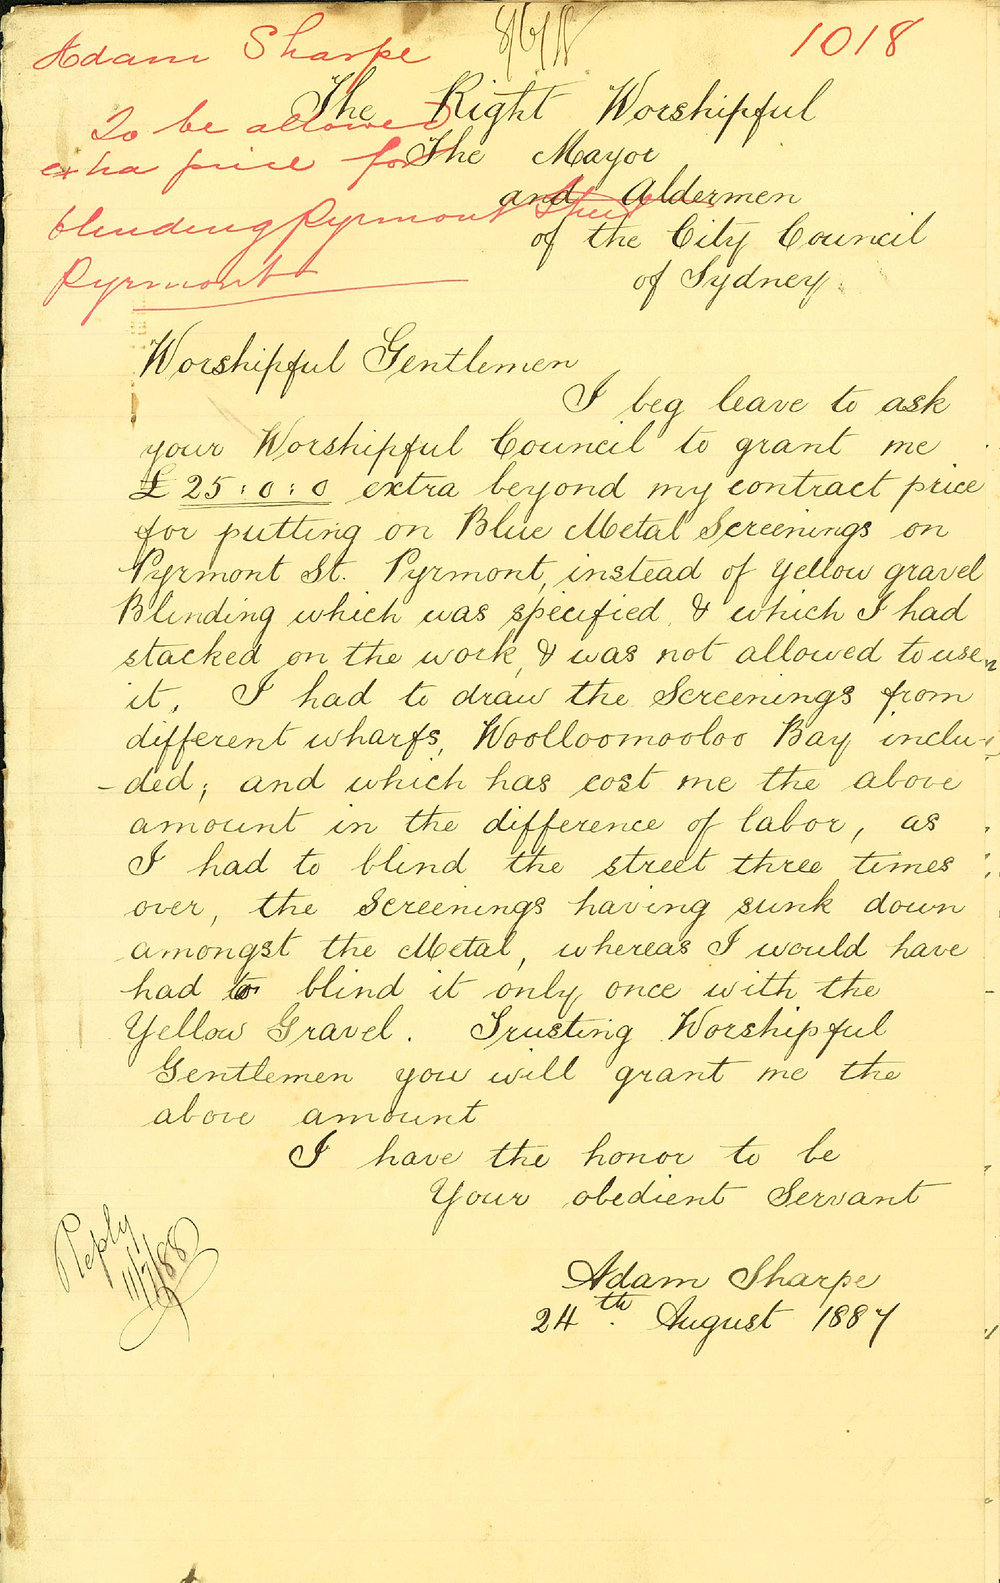 Adam Sharpe
1018
To be allowed
extra price for
blinding Pyrmont Street
Pyrmont
The Right Worshipful
The Mayor
and Aldermen
of the City Council
of Sydney
Worshipful Gentlemen
I beg leave to ask
your Worshipful Council to grant me
£25:0:0 extra beyond my contract price
for putting on Blue Metal Screenings on
Pyrmont St. Pyrmont, instead of yellow gravel
Blinding which was specified, & which I had
stacked on the work, & was not allowed to use
it. I had to draw the Screenings from
different wharfs, Woolloomooloo Bay inclu-
-ded; and which has cost me the above
amount in the difference of labor, as
I had to blind the street three times
over, the Screenings having sunk down
amongst the Metal, whereas I would have
had to blind it only once with the
Yellow Gravel. Trusting Worshipful
Gentlemen you will grant me the
above amount
I have the honor to be
Your obedient Servant
Adam Sharpe
24th. August 1887
Reply
11/7/88